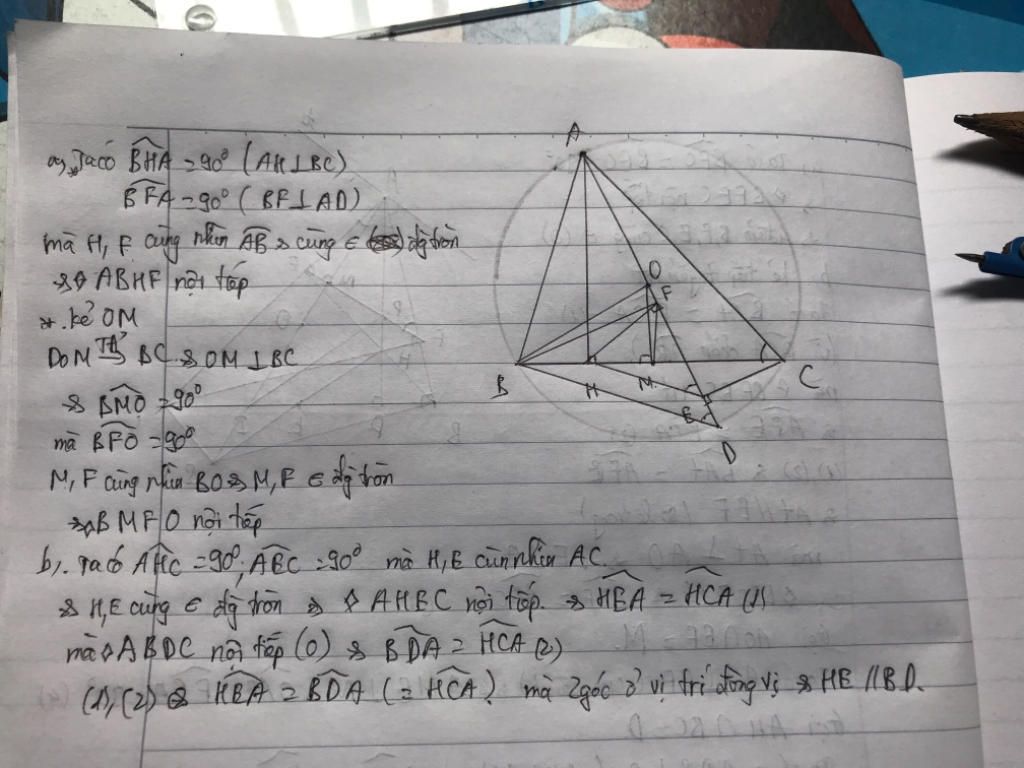 a, * Ta có BHA = 90° (AH ⊥ BC)
BFA = 90° (BF ⊥ AD)
mà H, F cùng nhìn AB => cùng ∈ đg tròn
=> ◊ ABHF nội tiếp
*. kẻ OM
Do M TĐ BC => OM ⊥ BC
=> BMO = 90°
mà BFO = 90°
M, F cùng nhìn BO => M, F ∈ đg tròn
=> ◊ BMFO nội tiếp
b,. Ta có AHC = 90°; AEC = 90° mà H, E cùn nhìn AC.
=> H, E cùng ∈ đg tròn => ◊ AHEC nội tiếp. => HEA = HCA (1)
mà ◊ ABDC nội tiếp (O) => BDA = HCA (2)
(1), (2) => HEA = BDA (= HCA). mà 2 góc ở vị trí đồng vị => HE // BD.
A
O
F
B
H
M
C
E
D